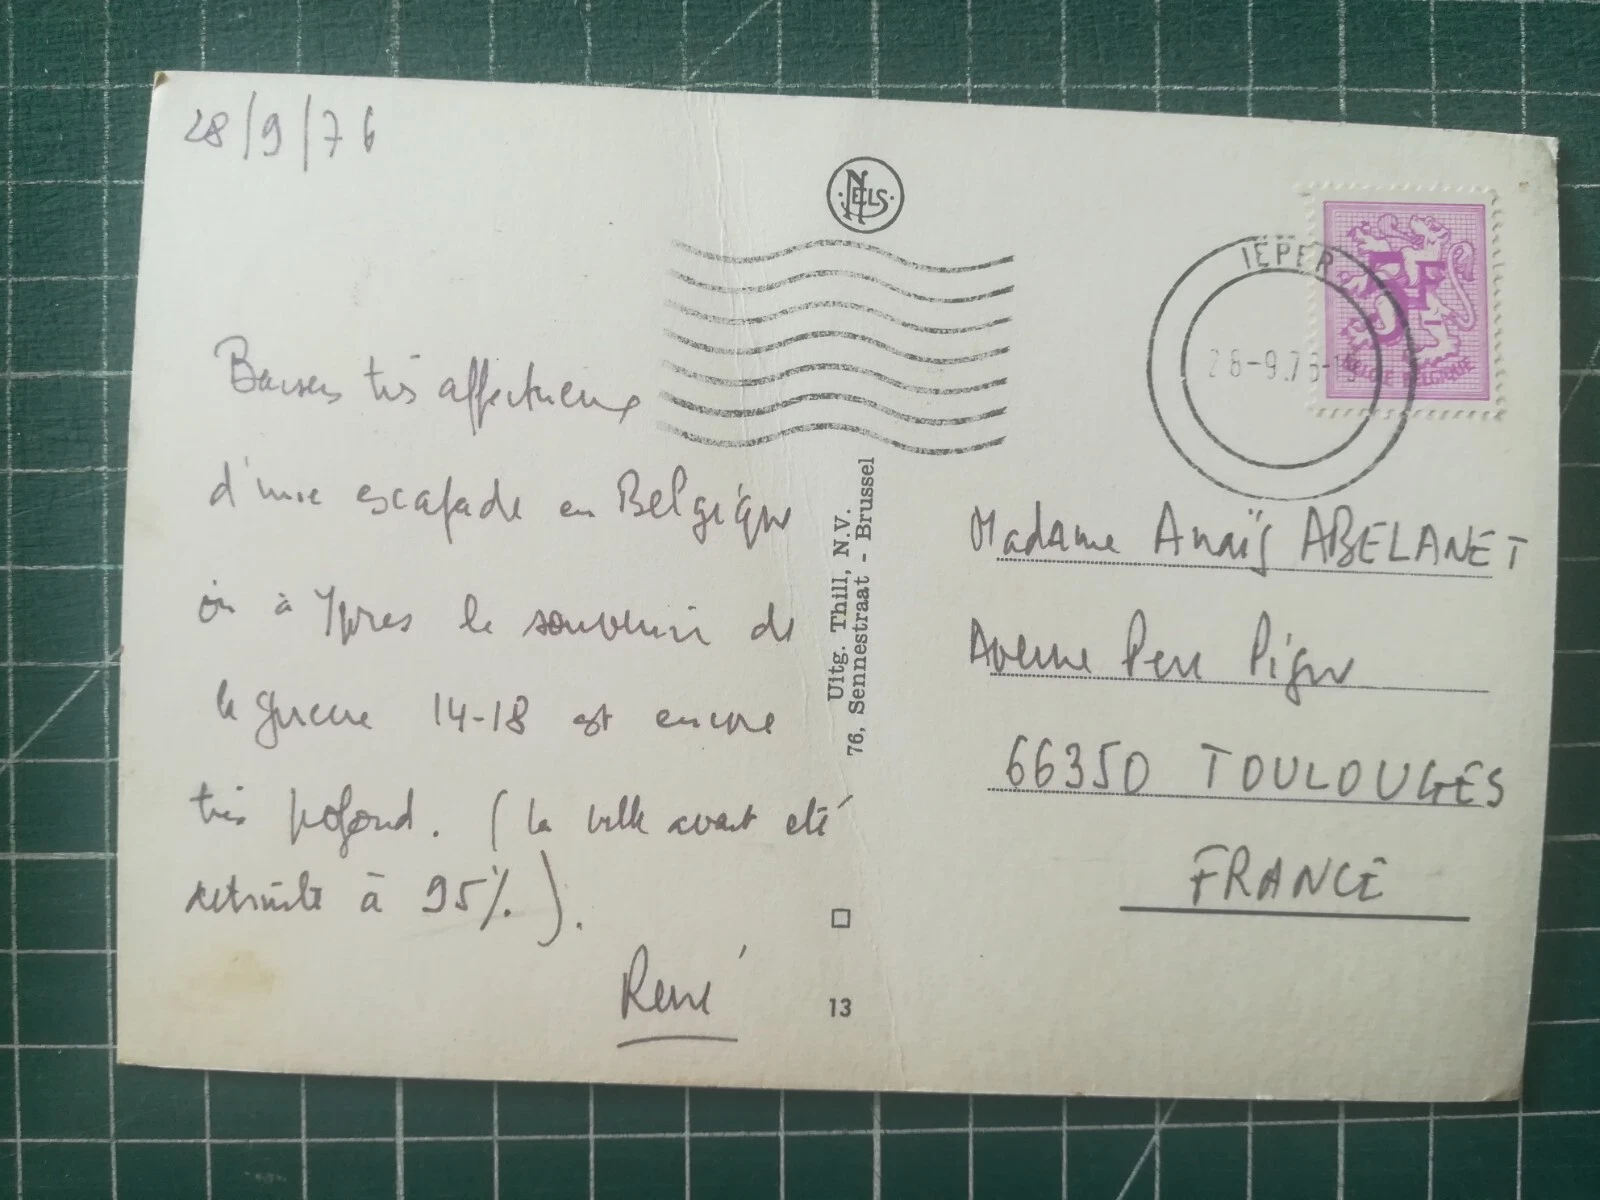 28/9/76
NELS
IEPER
28-9.76-
BELGIË BELGIQUE
Baisers très affectueux
d'une escapade en Belgique
où à Ypres le souvenir de
la guerre 14-18 est encore
très profond. (la ville avait été
détruite à 95%.).
René
Uitg. Thill, N.V.
76, Sennestraat - Brussel
13
Madame Anaïs ABELANET
Avenue
66350 TOULOUGES
FRANCE